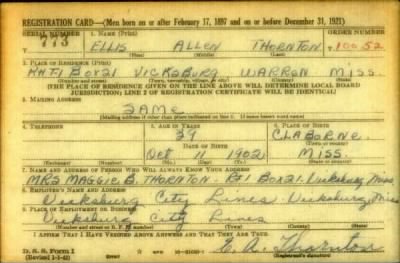 REGISTRATION CARD—(Men born on or after February 17, 1897 and on or before December 31, 1921)
SERIAL NUMBER 1. NAME (Print) ORDER NUMBER
773 ELLIS ALLEN THORNTON 10052
(First) (Middle) (Last)
2. PLACE OF RESIDENCE (Print)
RT1 BOX21 VICKSBURG WARREN MISS.
(THE PLACE OF RESIDENCE GIVEN ON THE LINE ABOVE WILL DETERMINE LOCAL BOARD
JURISDICTION; LINE 2 OF REGISTRATION CERTIFICATE WILL BE IDENTICAL)
3. MAILING ADDRESS
SAME
(Mailing address if other than place indicated on line 2. If same insert word same)
4. TELEPHONE 5. AGE IN YEARS 6. PLACE OF BIRTH
39 CLABORNE
DATE OF BIRTH (Town or county)
OCT 11 1902 MISS.
(Exchange) (Number) (Mo.) (Day) (Yr.) (State or country)
7. NAME AND ADDRESS OF PERSON WHO WILL ALWAYS KNOW YOUR ADDRESS
MRS MAGGIE B. THORNTON RT1 BOX21 Vicksburg, Miss
8. EMPLOYER'S NAME AND ADDRESS
Vicksburg City Lines Vicksburg, Miss
9. PLACE OF EMPLOYMENT OR BUSINESS
Vicksburg City Lines
(Number and street or R. F. D. number) (Town) (County) (State)
I AFFIRM THAT I HAVE VERIFIED ABOVE ANSWERS AND THAT THEY ARE TRUE.
D. S. S. Form 1
(Revised 1-1-42) E. A. Thornton